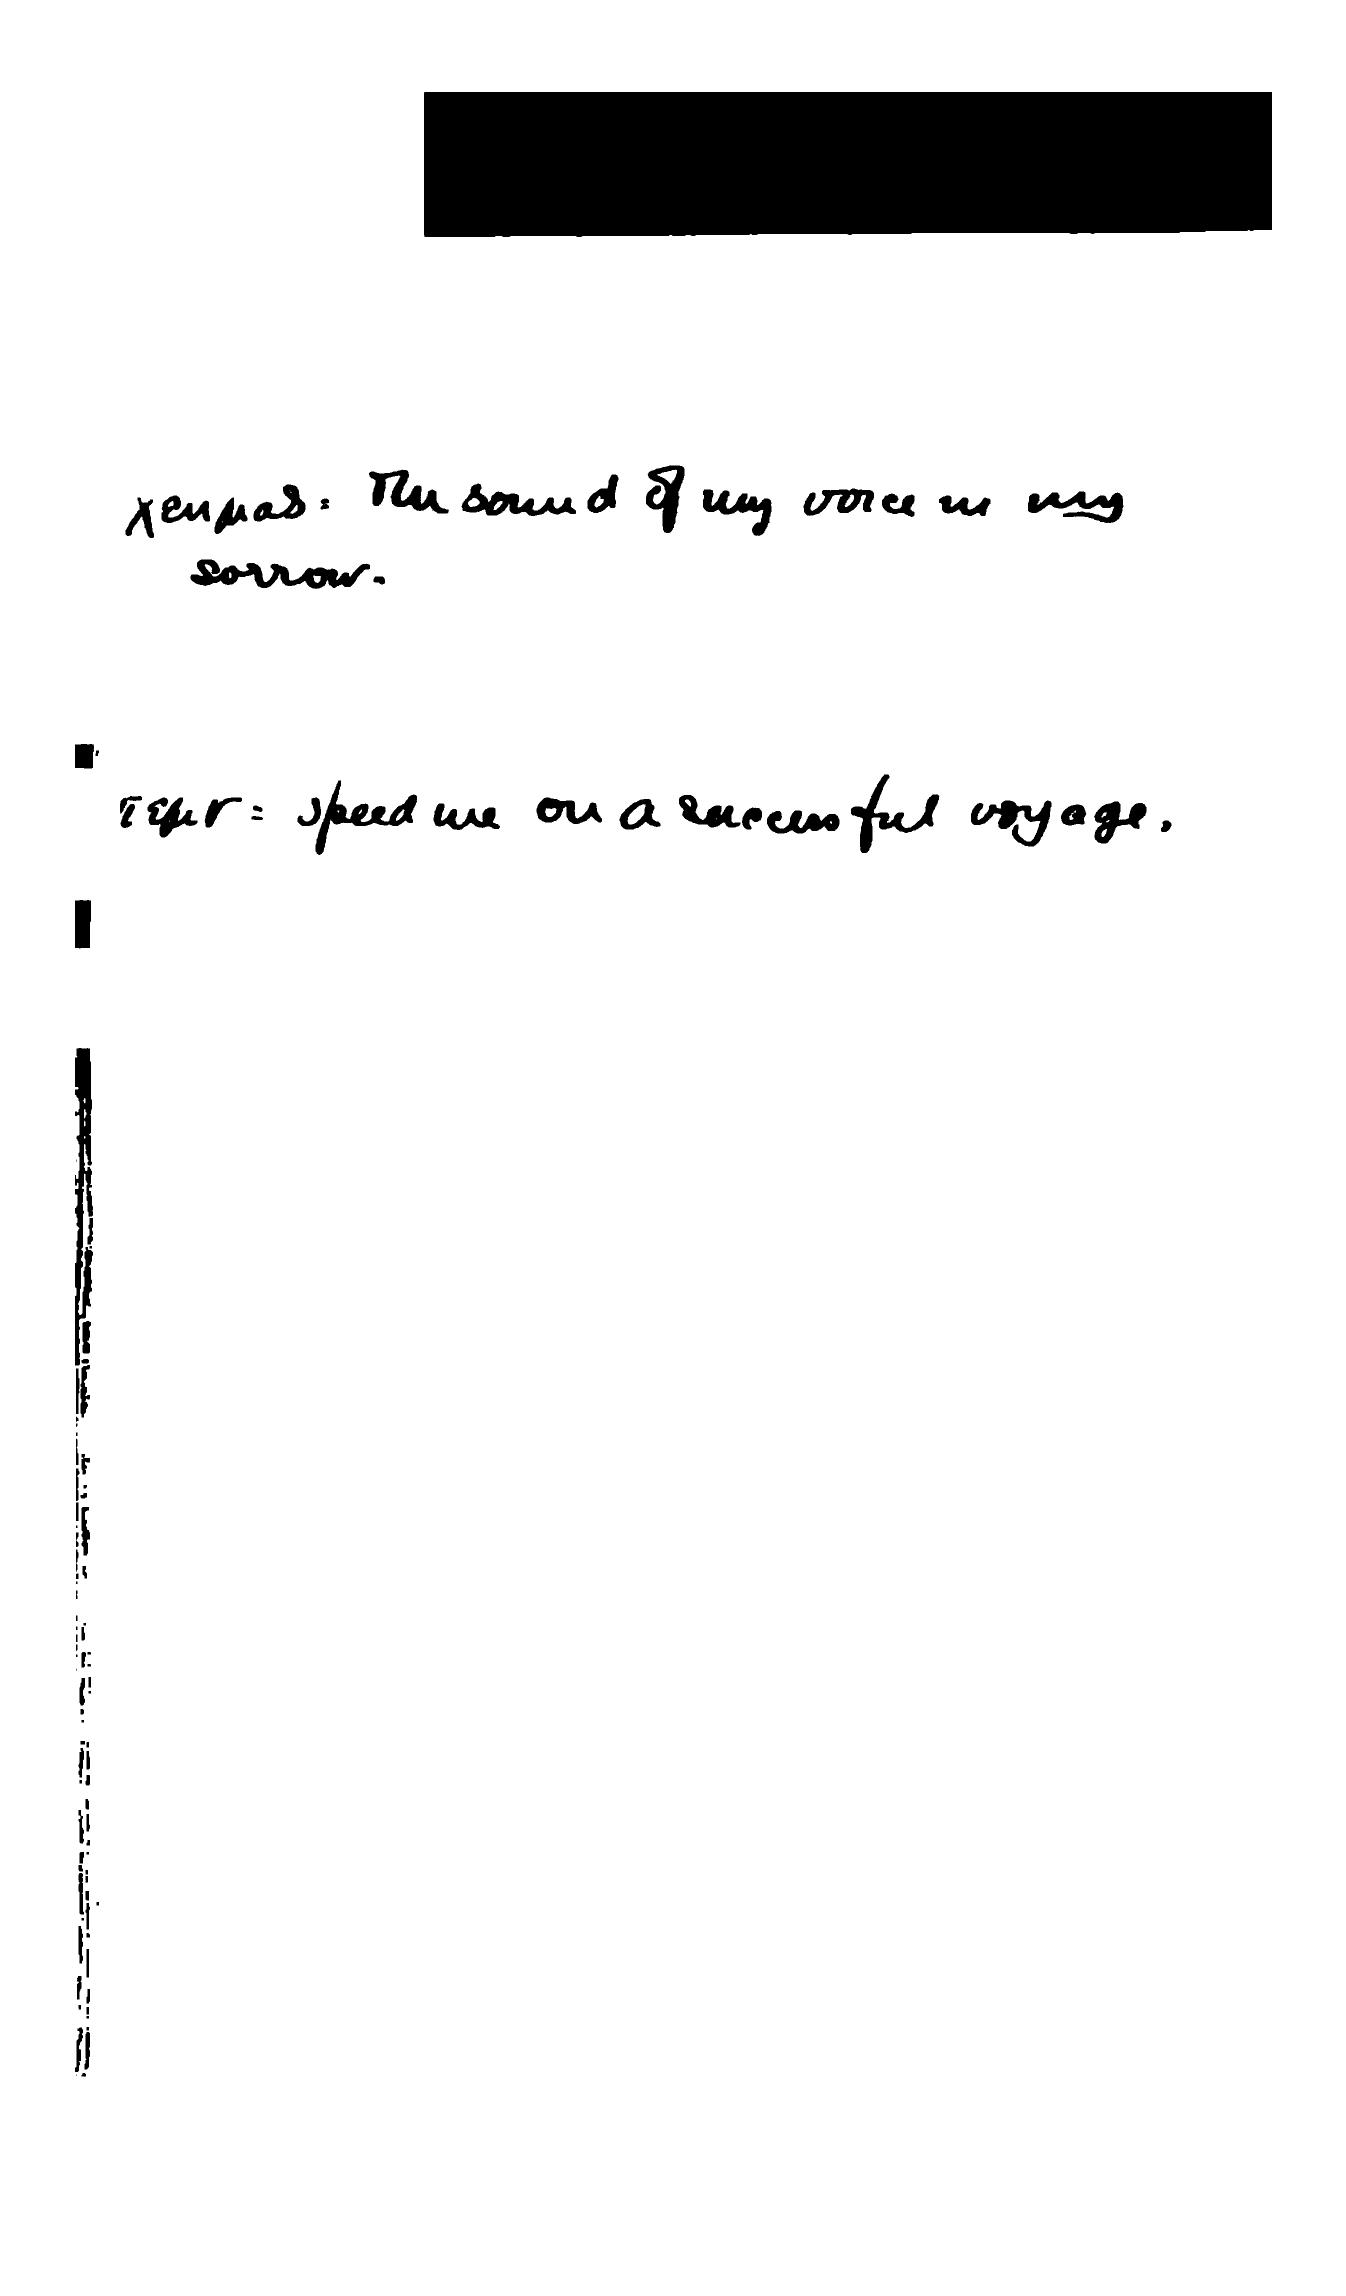 The sound of my voice in my
sorrow.
= speed me on a successful voyage.